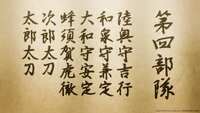 第四部隊
陸奥守吉行
和泉守兼定
大和守安定
蜂須賀虎徹
次郎太刀
太郎太刀